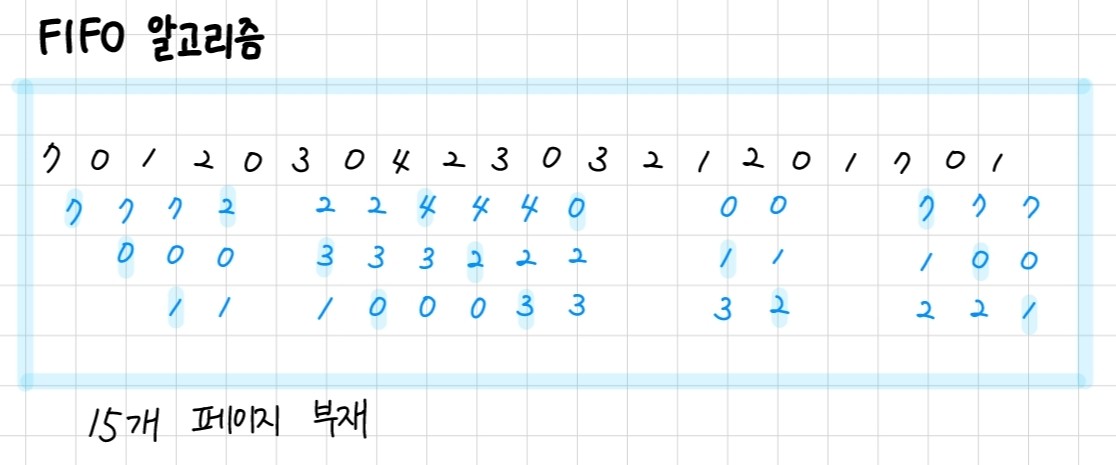 FIFO 알고리즘
7 0 1 2 0 3 0 4 2 3 0 3 2 1 2 0 1 7 0 1
7 7 7 2 2 2 4 4 4 0 0 0 7 7 7
0 0 0 3 3 3 2 2 2 1 1 1 0 0
1 1 1 0 0 0 3 3 3 2 2 2 1
15개 페이지 부재